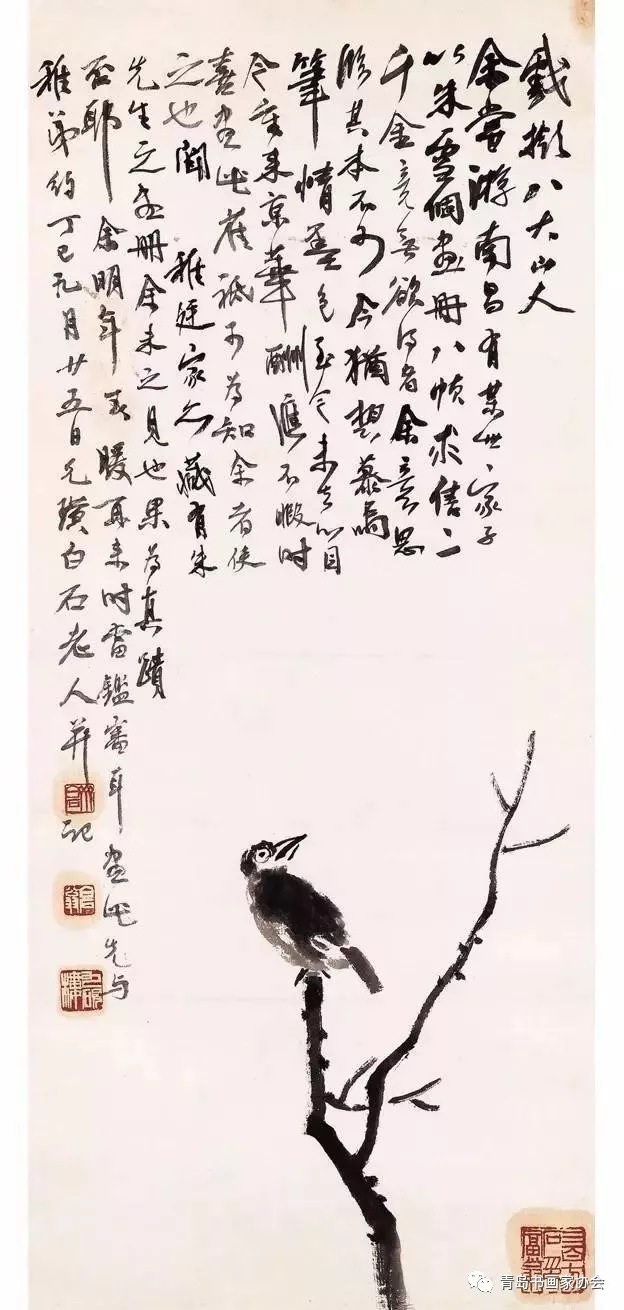 戲擬八大山人
余嘗游南昌有某世〻家子
以朱雪個畫冊八幀求售二
千金竟無欲得者余意思
臨其本不可今猶想慕焉
筆情墨色至今未去心目
今重来京華酬應不暇時
喜畫此雀祗可為知余者使
之也聞稚廷家久藏有朱
先生之畫冊余未之見也果為真蹟
否耶余明年春暖再来時當鑑審耳畫此先与
稚弟約丁巳九月廿五日兄璜白石老人并記
青岛书画家协会